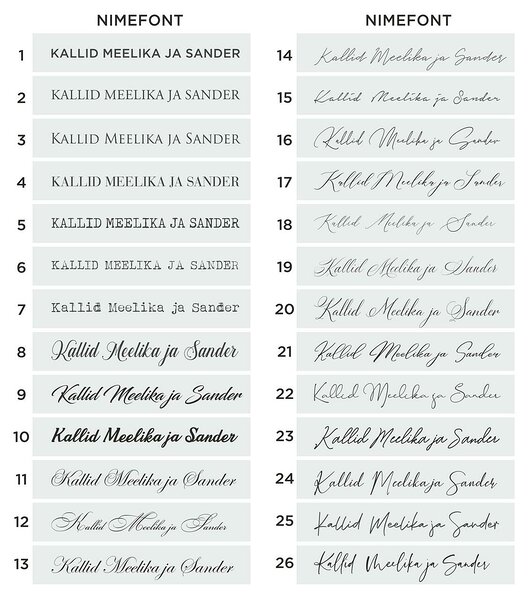 NIMEFONT
1 KALLID MEELIKA JA SANDER
2 KALLID MEELIKA JA SANDER
3 KALLID MEELIKA JA SANDER
4 KALLID MEELIKA JA SANDER
5 KALLID MEELIKA JA SANDER
6 KALLID MEELIKA JA SANDER
7 Kallid Meelika ja Sander
8 Kallid Meelika ja Sander
9 Kallid Meelika ja Sander
10 Kallid Meelika ja Sander
11 Kallid Meelika ja Sander
12 Kallid Meelika ja Sander
13 Kallid Meelika ja Sander
NIMEFONT
14 Kallid Meelika ja Sander
15 Kallid Meelika ja Sander
16 Kallid Meelika ja Sander
17 Kallid Meelika ja Sander
18 Kallid Meelika ja Sander
19 Kallid Meelika ja Sander
20 Kallid Meelika ja Sander
21 Kallid Meelika ja Sander
22 Kallid Meelika ja Sander
23 Kallid Meelika ja Sander
24 Kallid Meelika ja Sander
25 Kallid Meelika ja Sander
26 Kallid Meelika ja Sander